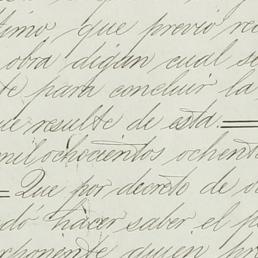 timo que previo rec
obra digan cual se
te para concluir la
ue resulte de esta.
mil ochocientos ochent
= Que por decreto de o
dó hacer saber el p
quien